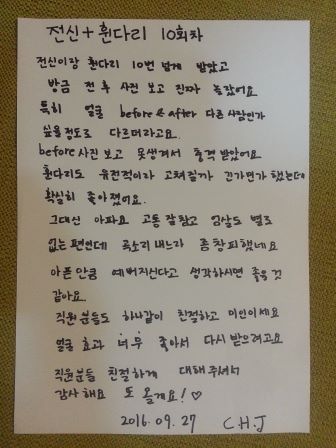 전신 + 휜다리 10회차
전신이랑 휜다리 10번 넘게 받았고
방금 전 후 사진 보고 진짜 놀랐어요
특히 얼굴 before & after 다른사람인가
싶을정도로 다르더라고요.
before 사진 보고 못생겨서 충격 받았어요
휜다리도 유전적이라 고쳐질까 긴가민가 했는데
확실히 좋아졌어요.
그대신 아파요 고통 잘참고 엄살도 별로
없는 편인데 곡소리 내느라 좀 창피했네요
아픈만큼 예뻐지신다고 생각하시면 좋을 것
같아요.
직원분들도 하나같이 친절하고 미인이세요
얼굴 효과 너무 좋아서 다시 받으려고요
직원분들 친절하게 대해주셔서
감사해요 또 올게요! ♡
2016.09.27 CH.J